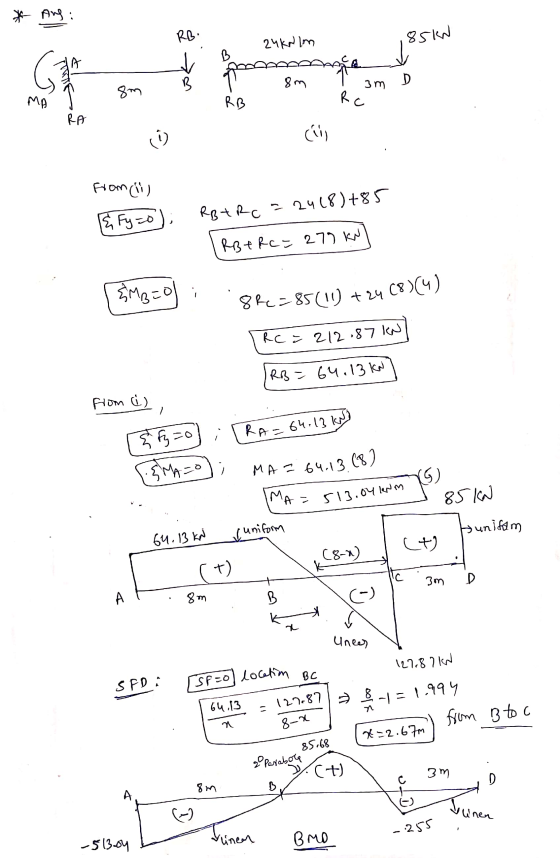 * Ans:
RB.
85 kN
24 kN/m
A
B
C
D
8m
B
8m
3m
MA
RA
RB
RC
(i)
(ii)
From (ii)
ΣFy=0 ; RB+RC = 24(8)+85
RB+RC = 277 kN
ΣMB=0 ; 8RC = 85(11) + 24(8)(4)
RC = 212.87 kN
RB = 64.13 kN
From (i),
ΣFy=0 ; RA = 64.13 kN
ΣMA=0 ; MA = 64.13(8)
MA = 513.04 kNm (5)
85 kN
64.13 kN
uniform
(8-x)
(+)
uniform
(+)
A
8m
B
(-)
C
3m
D
x
linear
127.87 kN
SFD: SF=0 location BC
64.13/x = 127.87/8-x ⇒ 8/x -1 = 1.994
x = 2.67m from B to C
85.68
2° Parabola
(+)
A
8m
B
C
3m
D
(-)
(-)
linear
-513.04
linear
-255
BMD